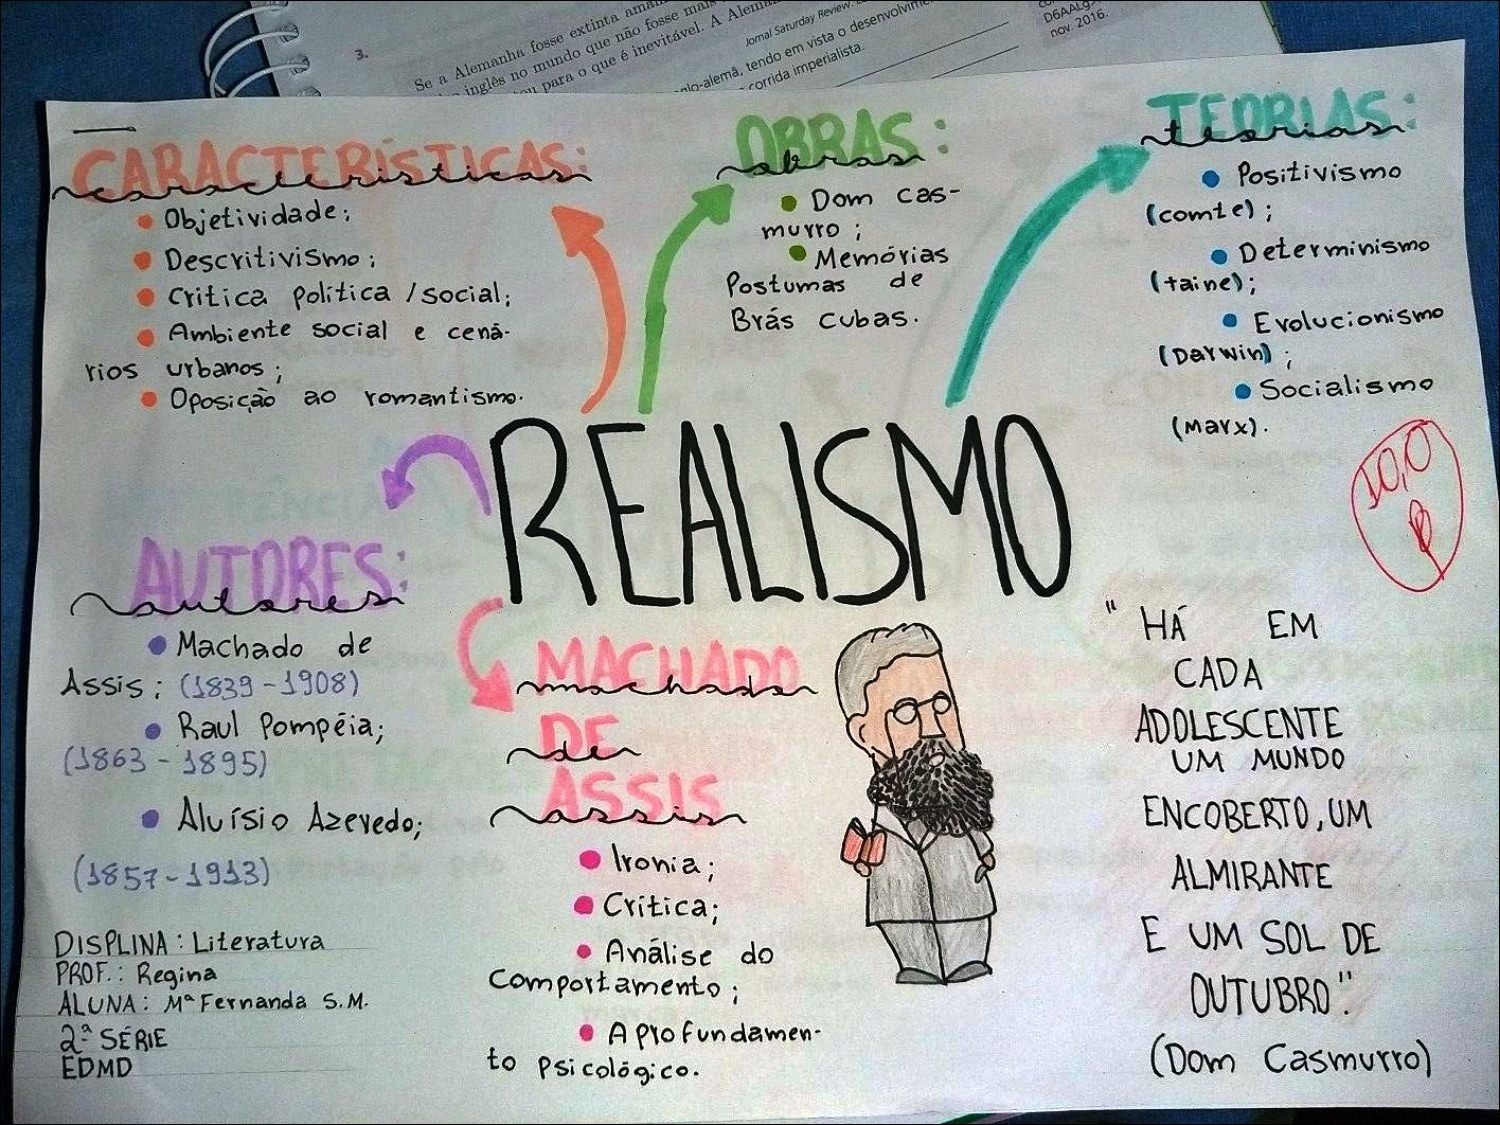 3.
Se a Alemanha fosse extinta
inglês no mundo que não fosse mais
para o que é inevitável. A
Jornal Saturday Review.
D6AALg
nov. 2016.
tendo em vista o
corrida imperialista.
CARACTERÍSTICAS:
caracteristicas
Objetividade;
Descritivismo;
Critica política / social;
Ambiente social e cená-
rios urbanos;
Oposição ao romantismo.
OBRAS:
obras
Dom cas-
murro;
Memórias
Postumas de
Brás cubas.
TEORIAS:
teorias
Positivismo
(comte);
Determinismo
(taine);
Evolucionismo
(Darwin);
Socialismo
(Marx).
10,0
REALISMO
AUTORES:
autores
Machado de
Assis; (1839-1908)
Raul Pompéia;
(1863-1895)
Aluísio Azevedo;
(1857-1913)
MACHADO
machado
DE
de
ASSIS
assis
Ironia;
Crítica;
Análise do
comportamento;
Aprofundamen-
to psicológico.
"HÁ EM
CADA
ADOLESCENTE
UM MUNDO
ENCOBERTO, UM
ALMIRANTE
E UM SOL DE
OUTUBRO".
(Dom Casmurro)
DISPLINA: Literatura
PROF.: Regina
ALUNA: Mª Fernanda S.M.
2ª SÉRIE
EDMD